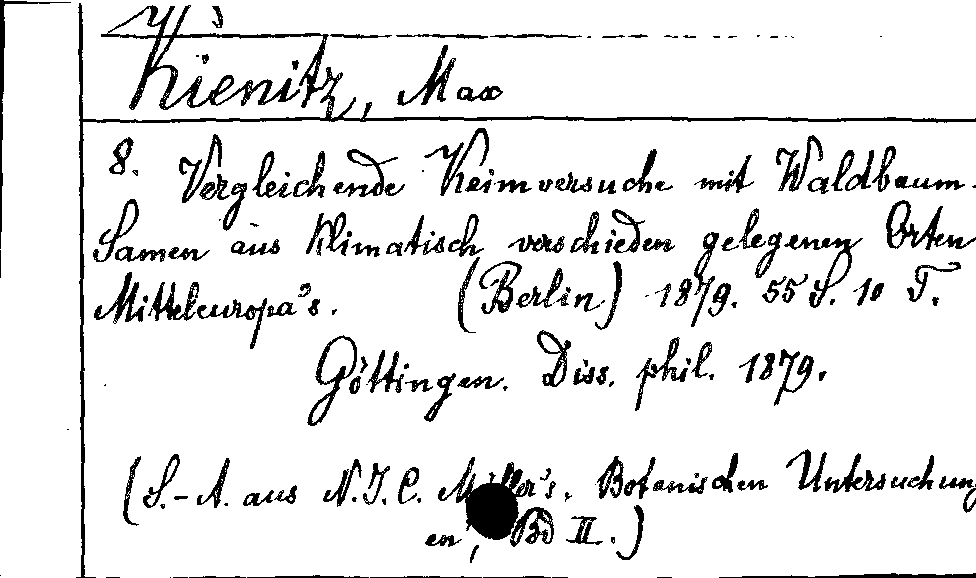 Kienitz, Max
8. Vergleichende Keimversuche mit Waldbaum-
Samen aus klimatisch verschieden gelegenen Orten
Mitteleuropa's. (Berlin) 1879. 55 S. 10 T.
Göttingen. Diss. phil. 1879.
(S.-A. aus N.J.C. Müller's, Botanischen Untersuchung
en, Bd II.)